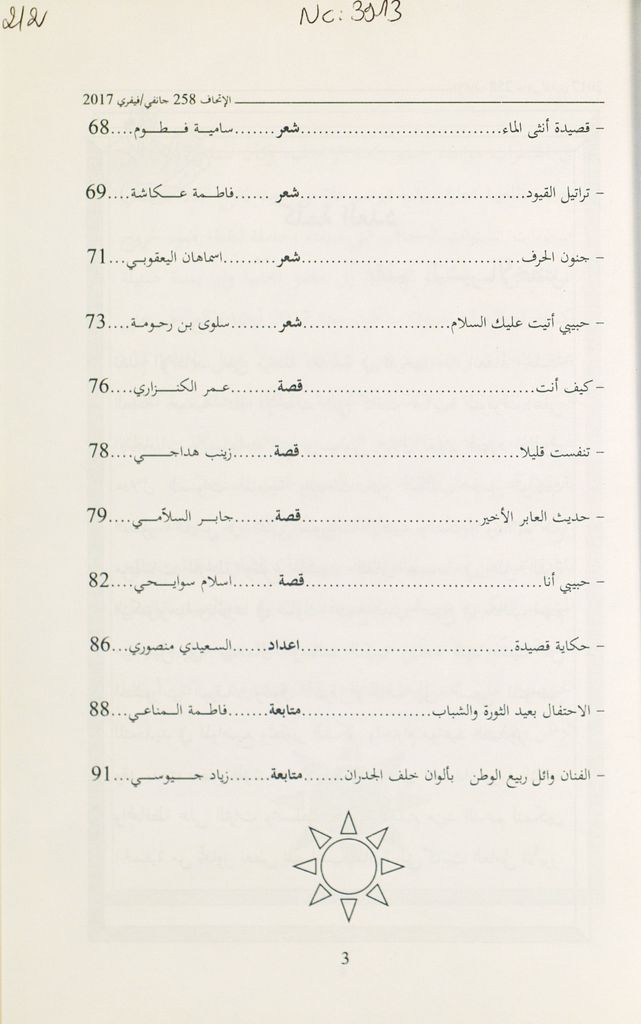 2/2
Nc: 3913
الإتحاف 258 جانفي/فيفري 2017
- قصيدة أنثى الماء..............................شعر.......سامية فطوم....68
- تراتيل القيود..................................شعر ......فاطمة عكاشة....69
- جنون الحرف...................................شعر........اسماهان اليعقوبي...71
- حبيبي أتيت عليك السلام......................شعر ........سلوى بن رحومة....73
- كيف أنت....................................قصة........عمر الكنزاري....76
- تنفست قليلا..................................قصة.......زينب هداجي....78
- حديث العابر الأخير..........................قصة.......جابر السلاّمي....79
- حبيبي أنا....................................قصة .......اسلام سوايحي...82
- حكاية قصيدة................................اعداد......السعيدي منصوري...86
- الاحتفال بعيد الثورة والشباب..................متابعة.......فاطمة المناعي...88
- الفنان وائل ربيع الوطن بألوان خلف الجدران.......متابعة.......زياد جيوسي...91
3